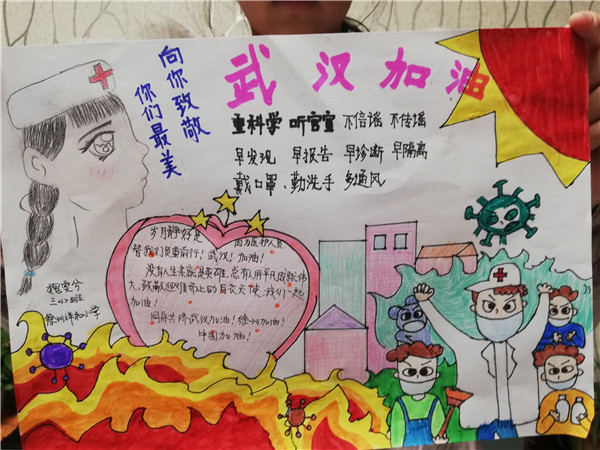 武汉加油
向你致敬
你们最美
重科学 听官宣 不信谣 不传谣
早发现 早报告 早诊断 早隔离
戴口罩、勤洗手 多通风
岁月静好是 因为医护人员
替我们负重前行！武汉！加油！
没有人生来就是英雄，总有人用平凡成就伟
大，致敬逆风 上的白衣天使，我们一起
加油！
同舟共济武汉加油！徐州加油！
中国加油！
三 班
徐州 和小学